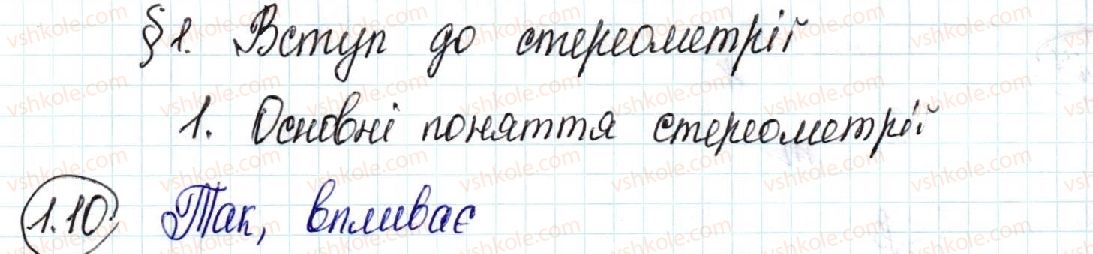 §1. Вступ до стереометрії
1. Основні поняття стереометрії
1.10. Так, впливає